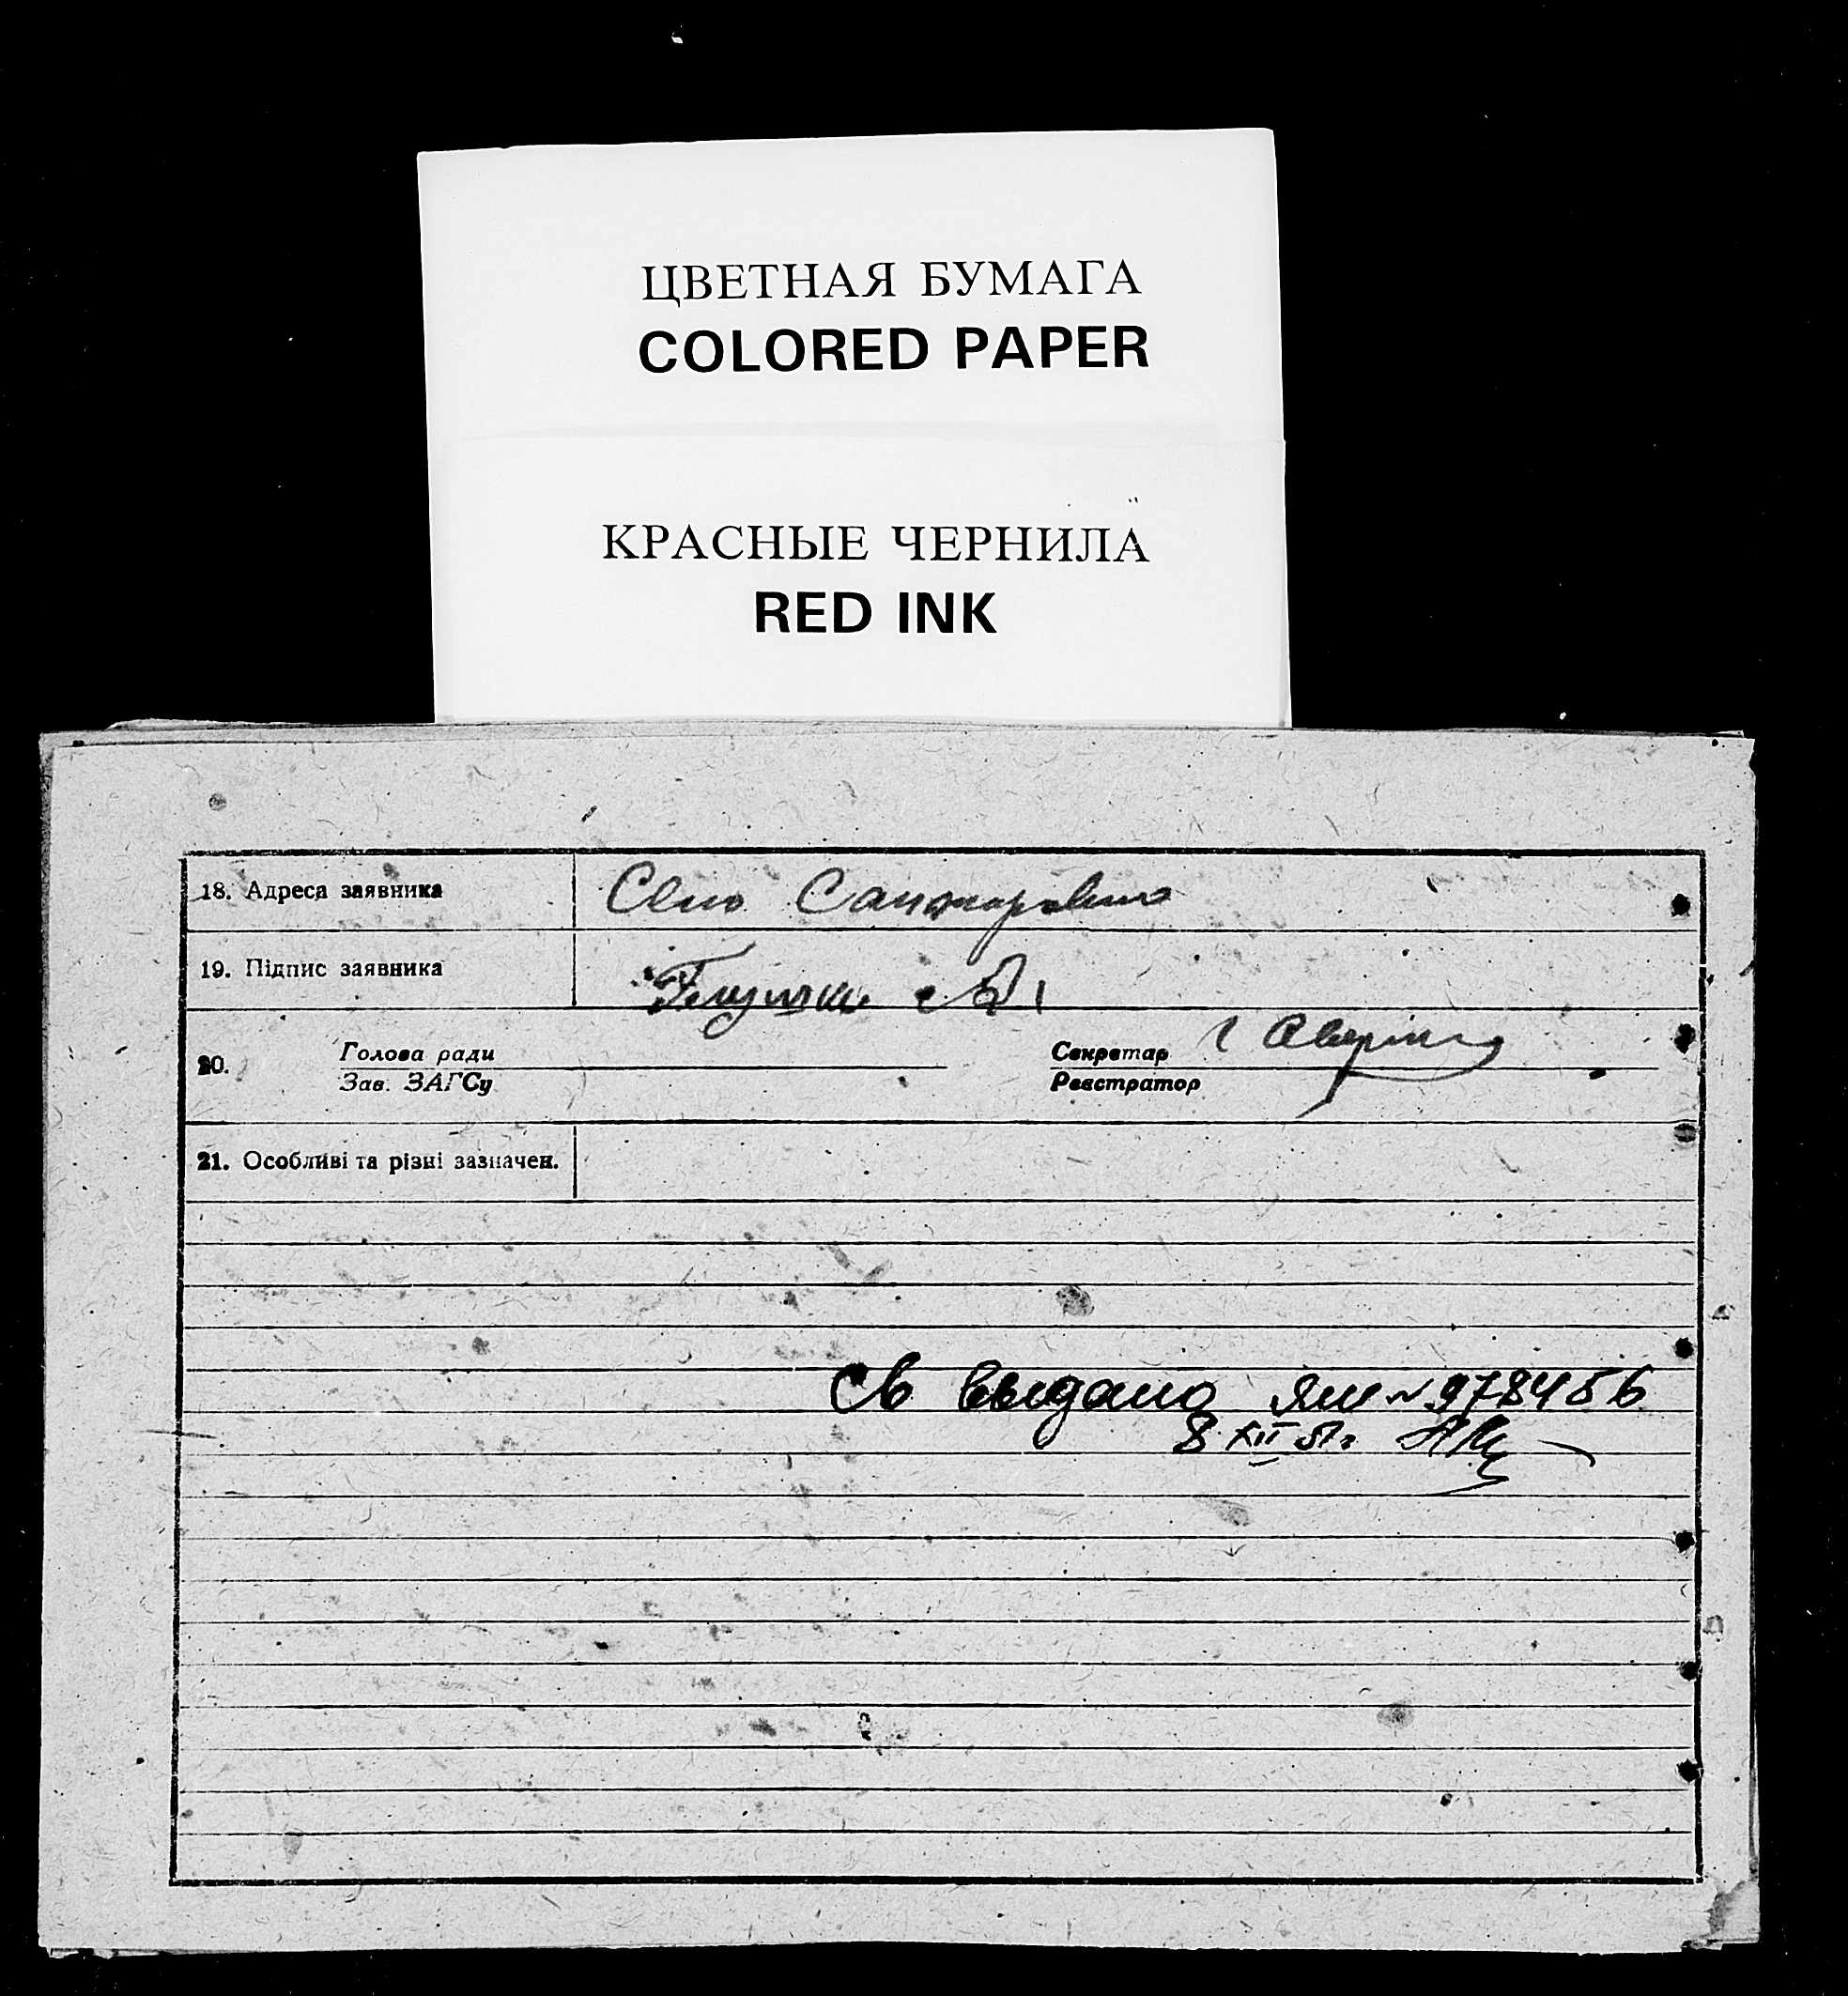 ЦВЕТНАЯ БУМАГА
COLORED PAPER
КРАСНЫЕ ЧЕРНИЛА
RED INK
18. Адреса заявника
19. Підпис заявника
20. Голова ради Секретар
Зав. ЗАГСу Реєстратор
21. Особливі та різні зазначен.
Св выдано № 978456
8 XII 51г.